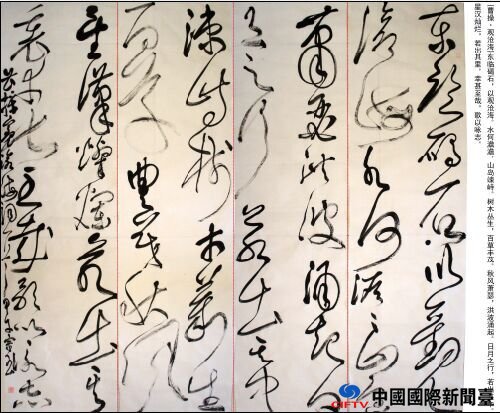 [曹操·观沧海]东临碣石，以观沧海。水何澹澹，山岛竦峙。树木丛生，百草丰茂。秋风萧瑟，洪波涌起。日月之行，若出
星汉灿烂，若出其里。幸甚至哉，歌以咏志。
東臨碣石以觀
滄海水何澹々山島
蕭瑟洪波涌起日
月之行若出其中
竦峙樹木叢生
百草豐茂秋風
星漢燦爛若出其
裏幸甚至哉歌以詠志
CIFTV 中國國際新聞臺